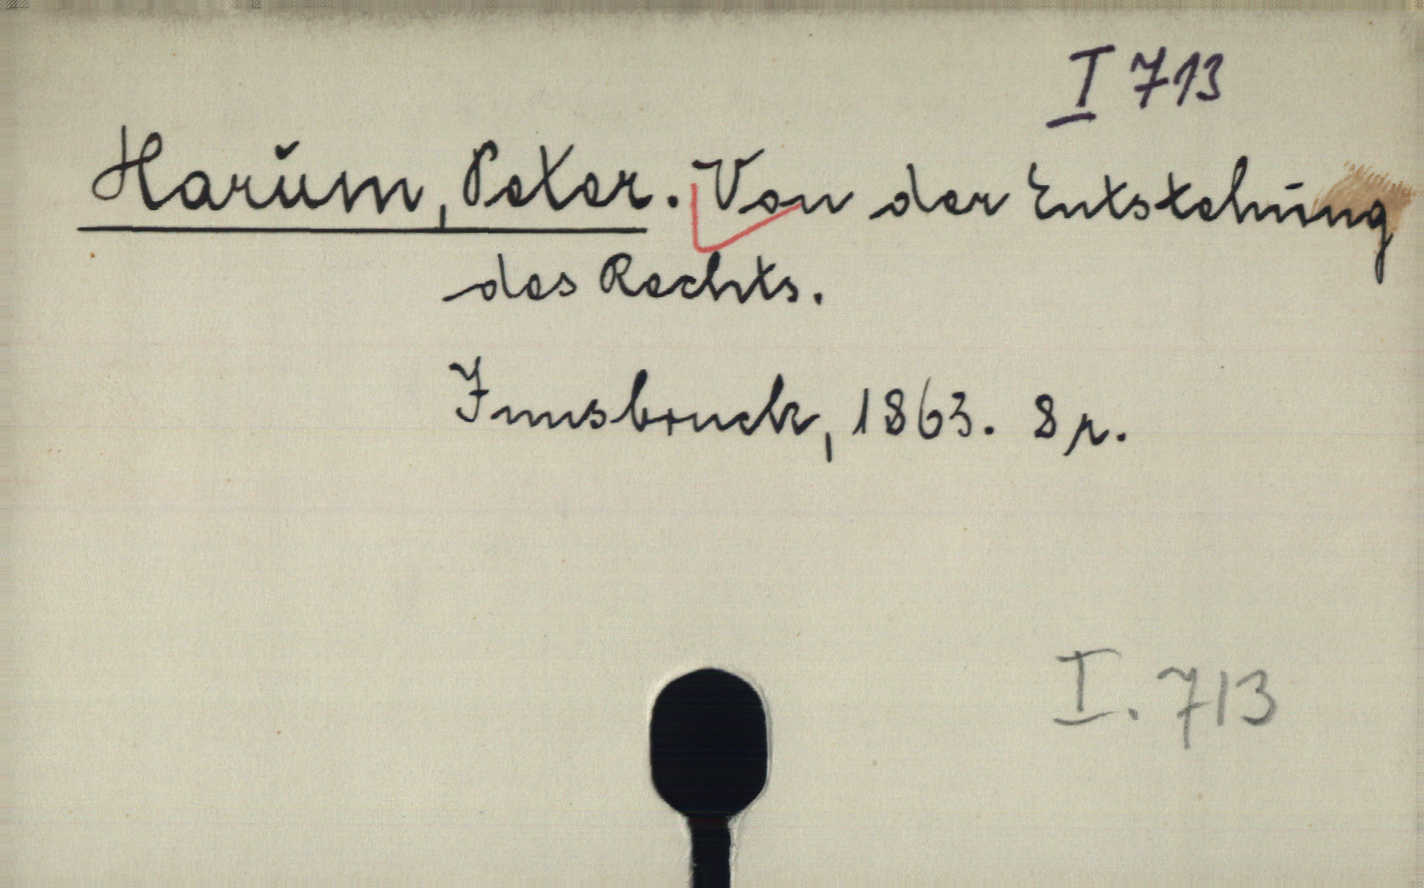 I 713
Harŭm, Peter. Von der Entstehung
des Rechts.
Innsbruck, 1863. 8 p.
I. 713